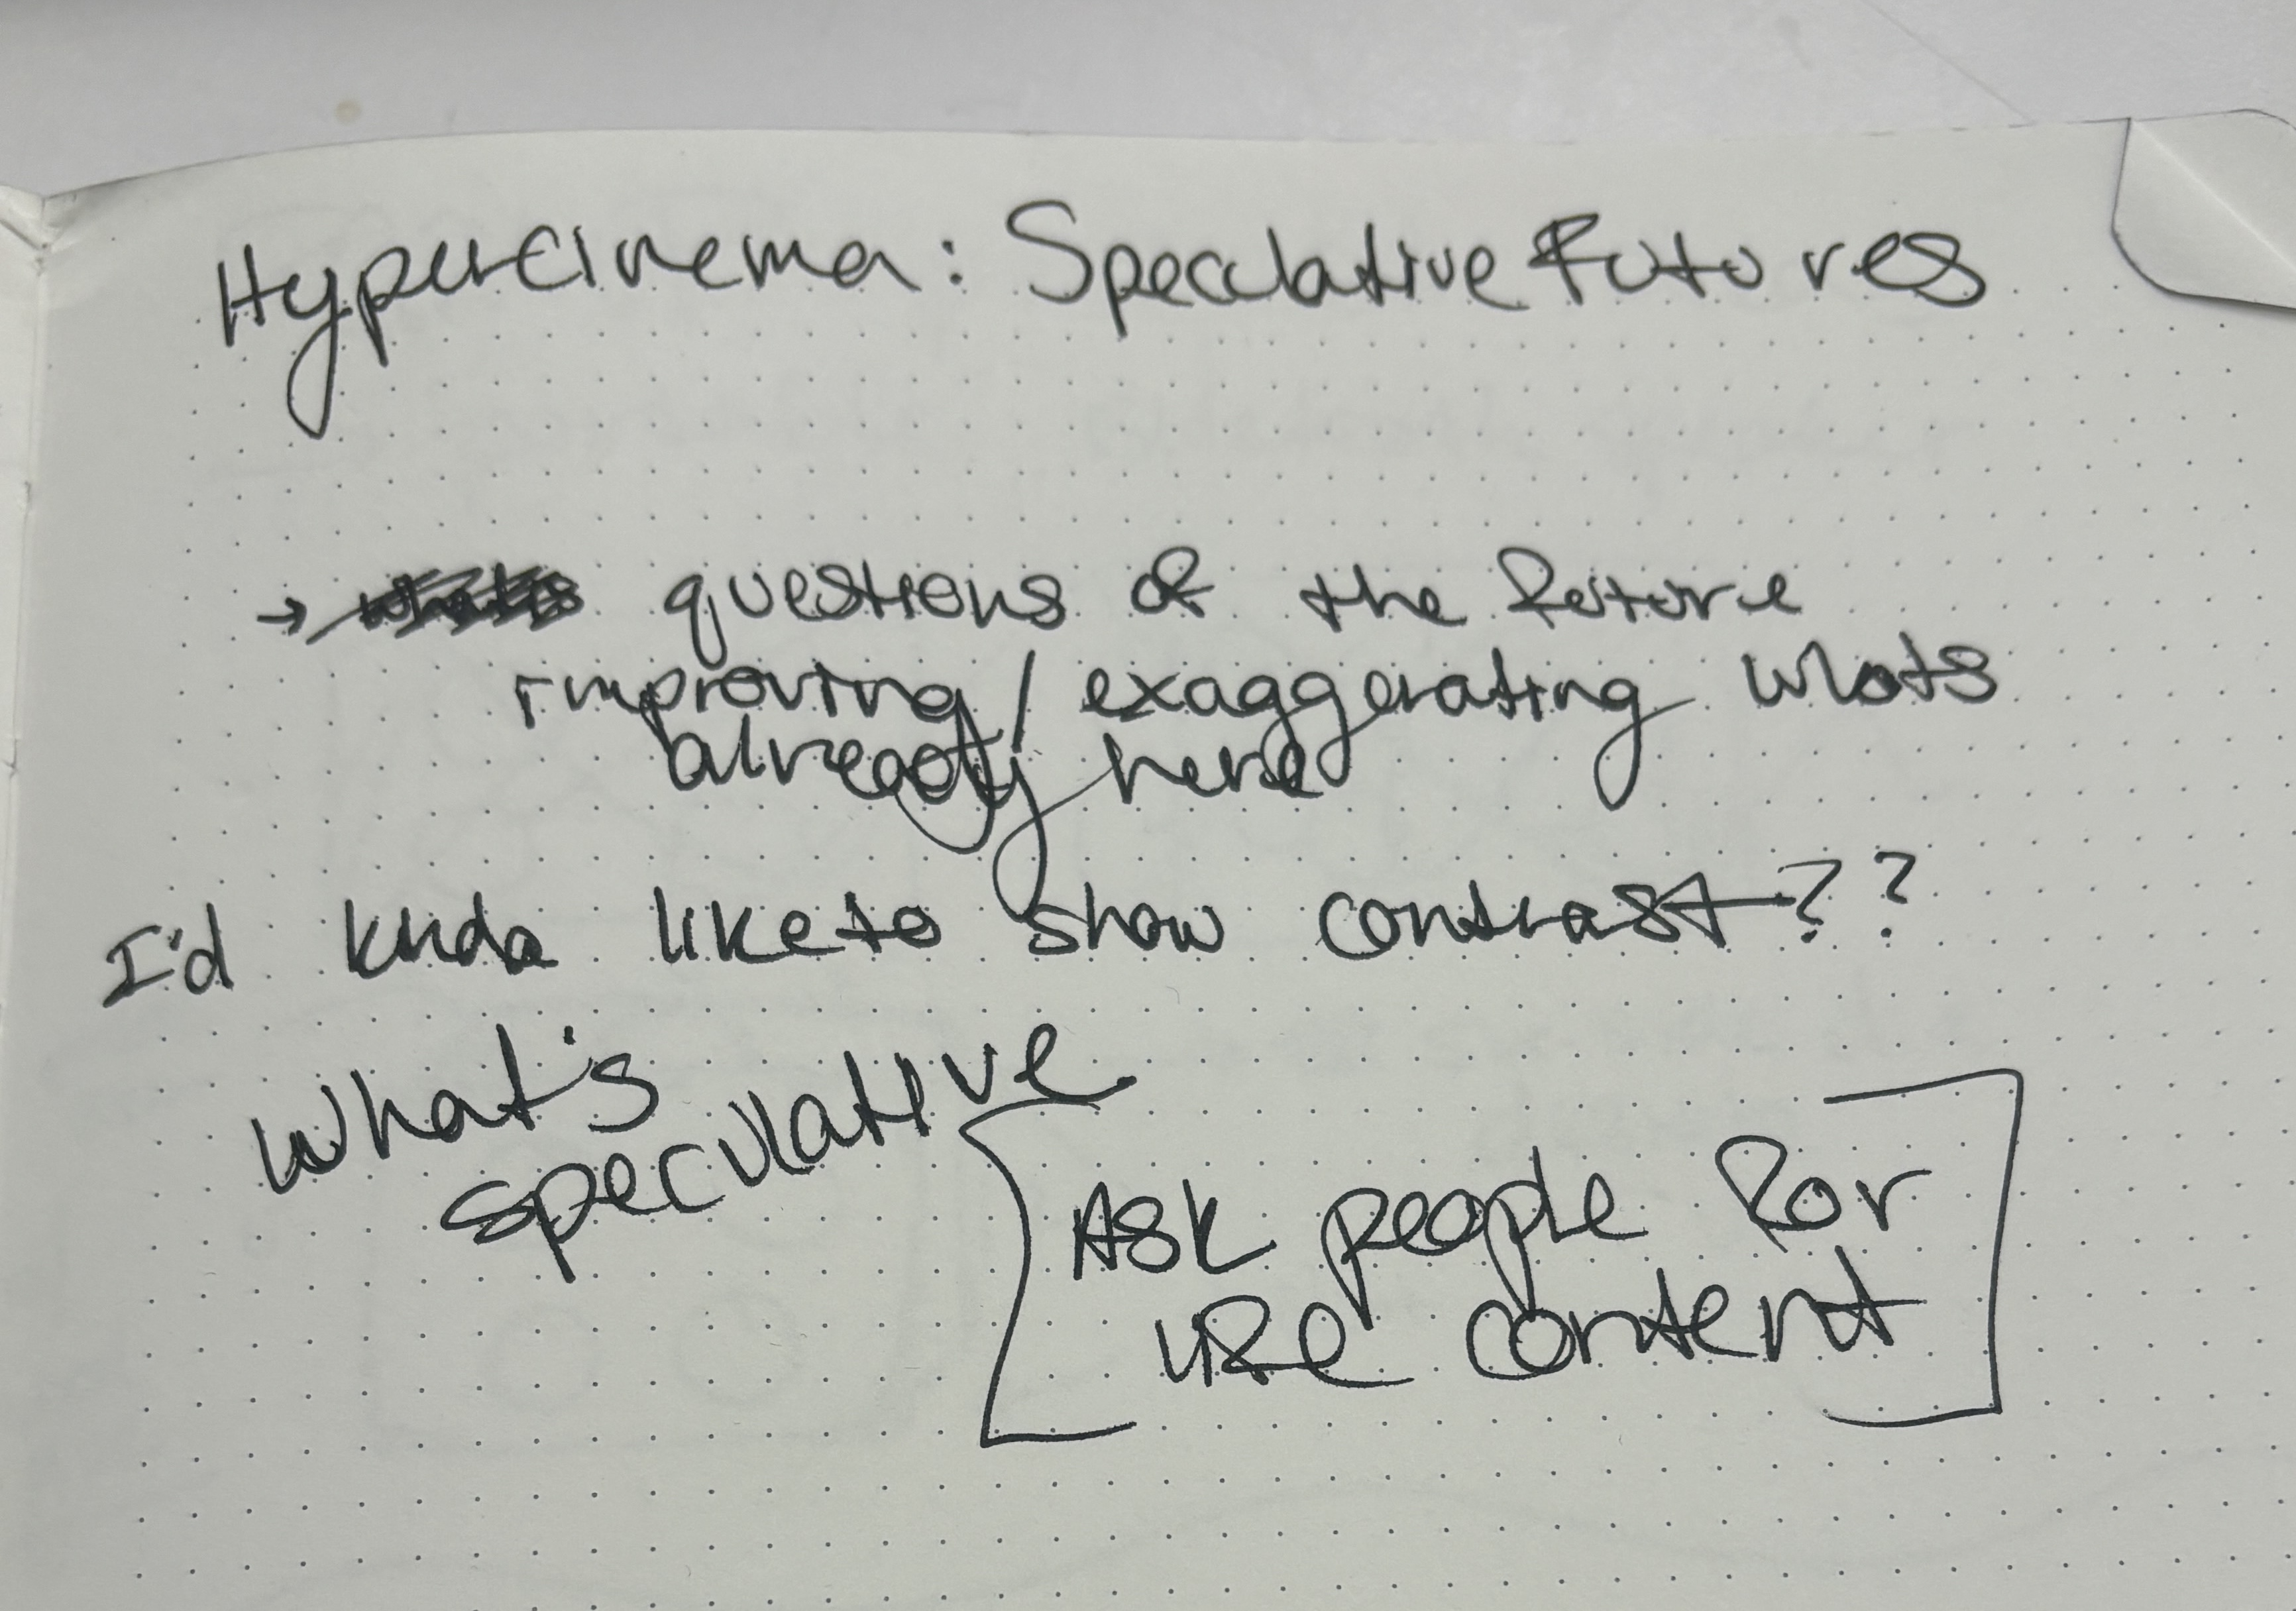 Hypercinema: Speculative Futures
→ questions of the future
improving/exaggerating whats
already here
I'd kinda like to show contrast??
What's
speculative
Ask people for
content